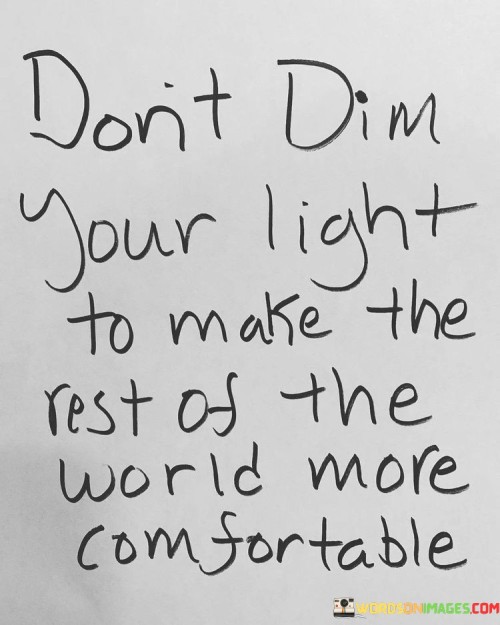 Don't Dim
your light
to make the
rest of the
world more
comfortable
WORDSONIMAGES.COM